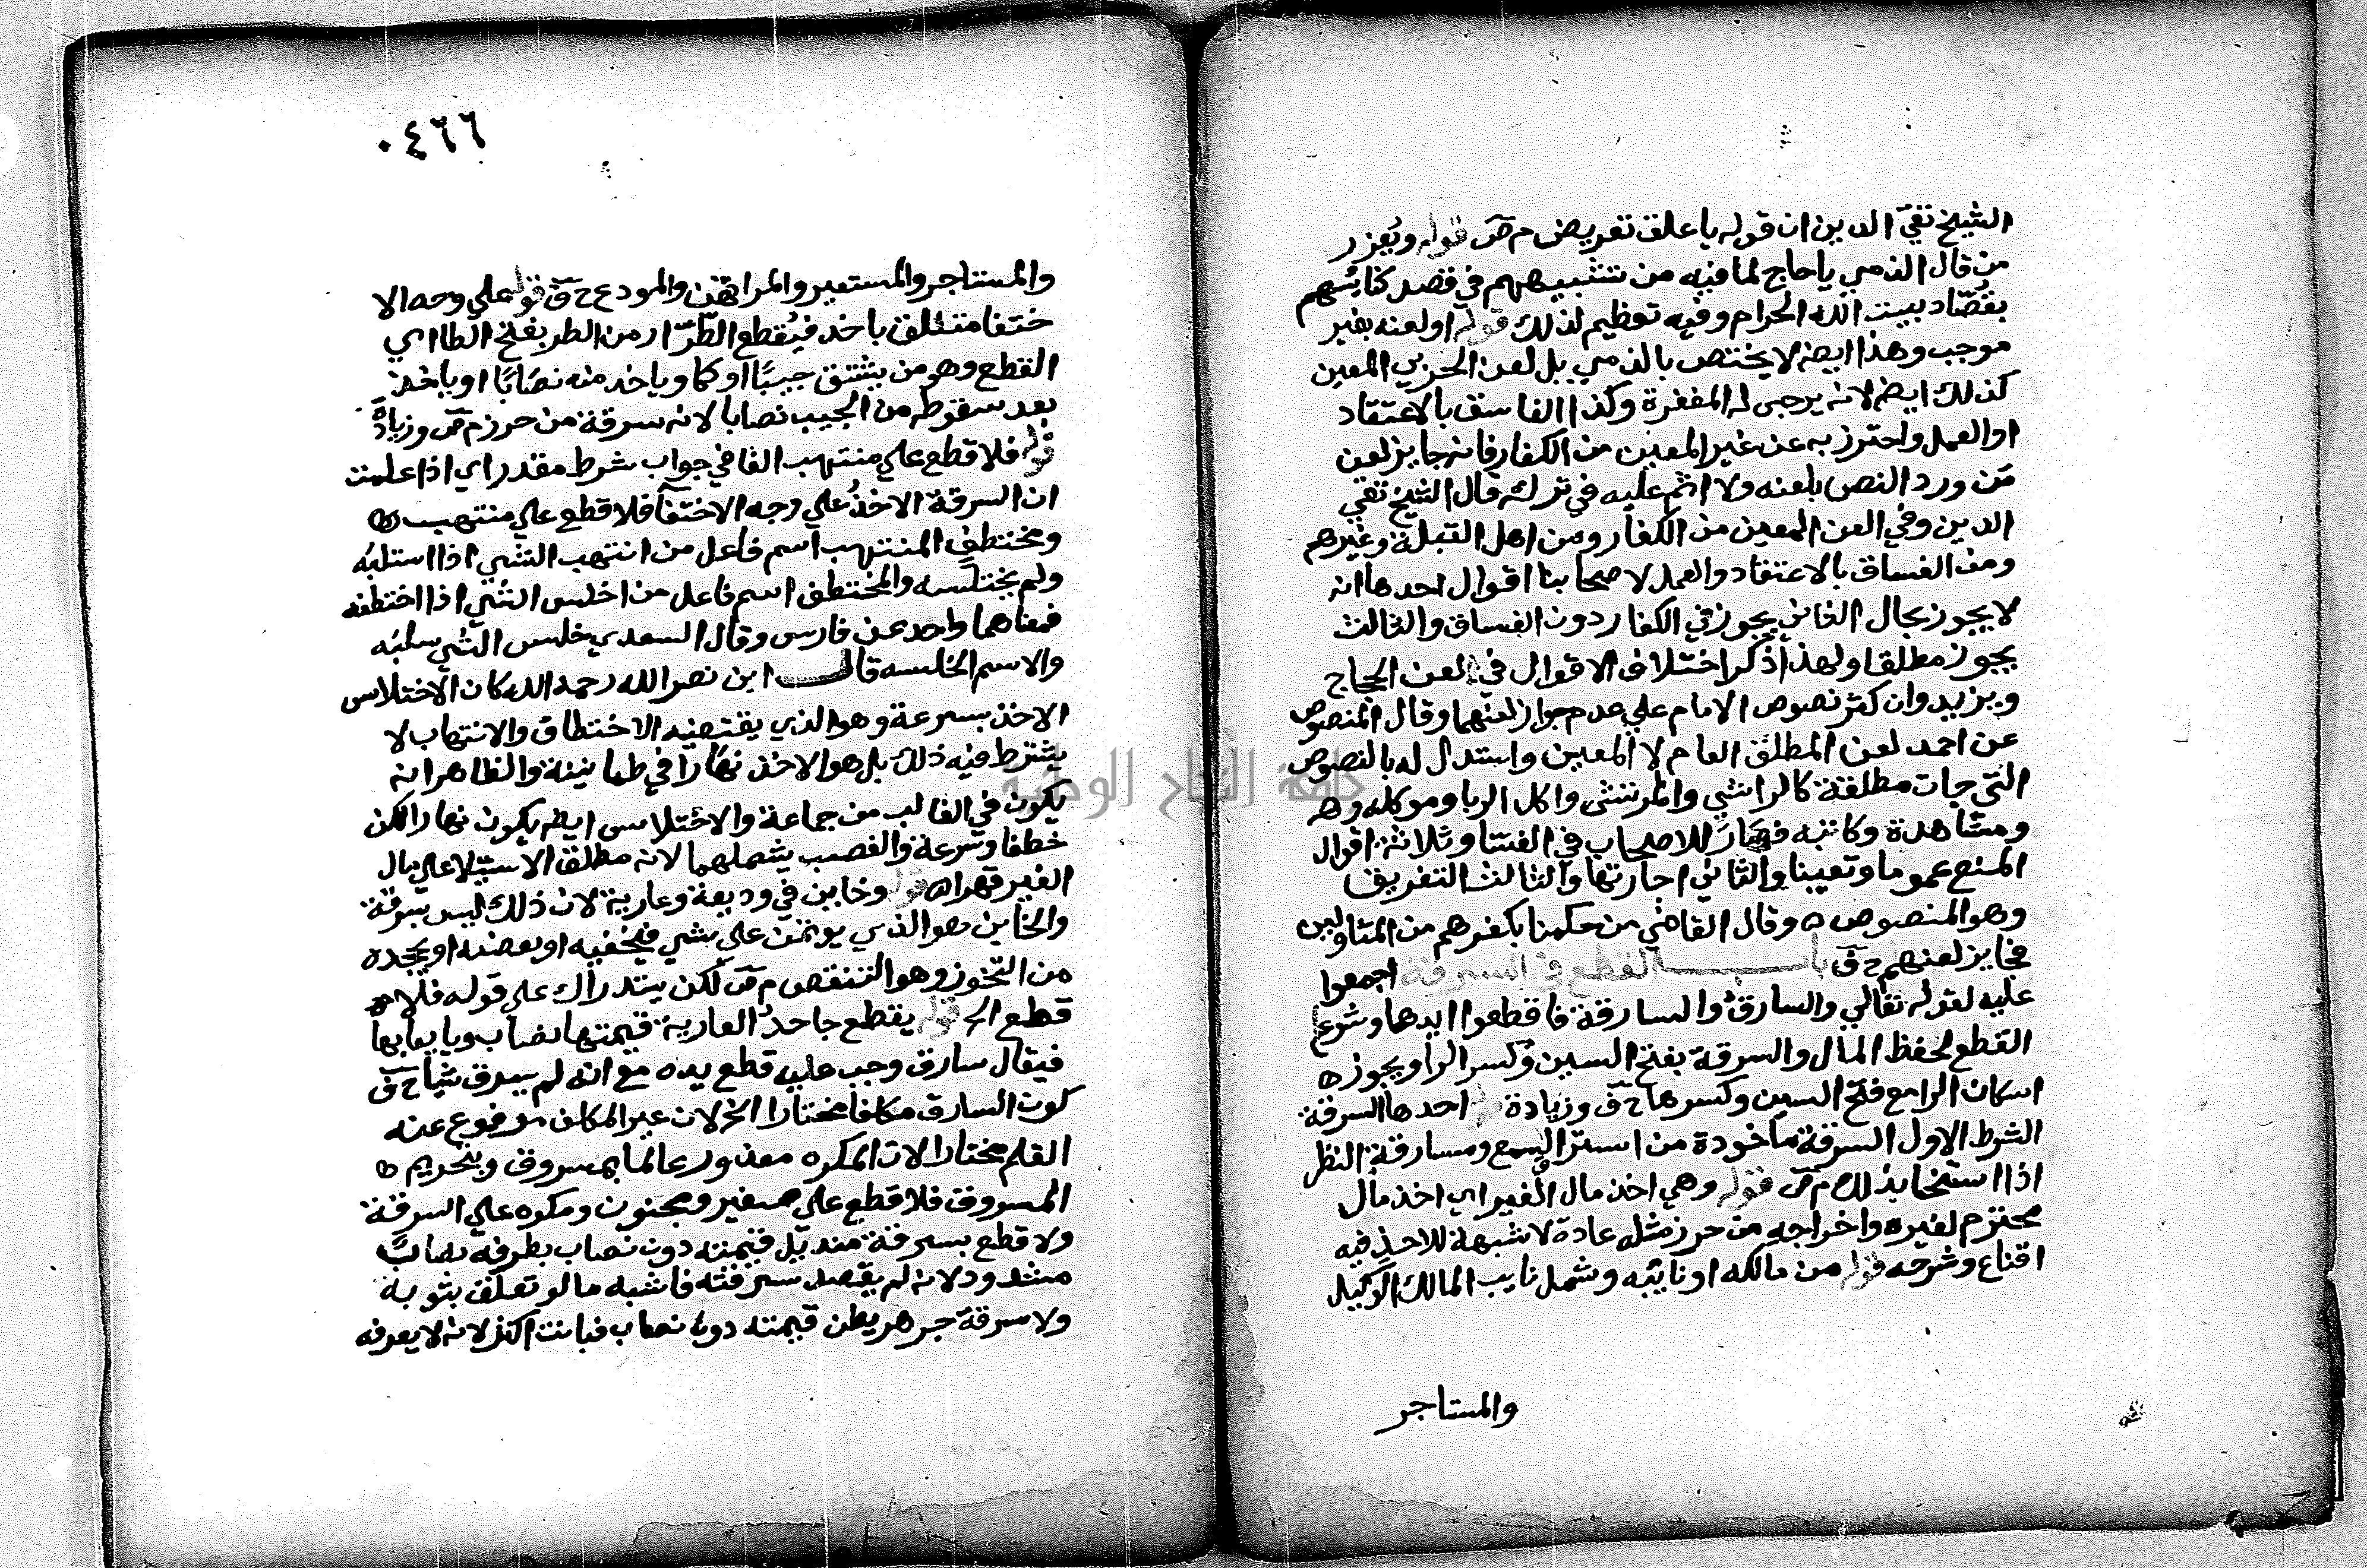 الشيخ تقي الدين ان قوله يا علق تعريض م ص قوله ويعزر
من قال الذمي يا حاج لما فيه من تشبيههم في قصد كنائسهم
بقصاد بيت الله الحرام وفيه تعظيم لذلك قوله او لعنه بغير
موجب وهذا ايضا لا يختص بالذمي بل لعن الحربي المعين
كذلك ايضا لانه يرجى له المغفرة وكذا الفاسق بالاعتقاد
او العمل واحترز به عن غير المعين من الكفار فانه جايز لعن
من ورد النص بلعنه ولا اثم عليه في تركه قال الشيخ تقي
الدين وفي العن المعين من الكفار ومن اهل القبلة وغيرهم
ومن الفساق بالاعتقاد والعمل لاصحابنا اقوال احدها انه
لا يجوز بحال الثاني يجوز في الكفار دون الفساق والثالث
يجوز مطلقا ولهذا ذكر اختلاف الاقوال في لعن الحجاج
ويزيد وان كثر نصوص الامام على عدم جواز لعنهما وقال المنصوص
عن احمد لعن المطلق العام لا المعين واستدل له بالنصوص
التي جات مطلقة كالراشي والمرتشى واكل الربا وموكله وه
ومشاهدة وكاتبه فصار للاصحاب في الفساق ثلاثة اقوال
المنع عموما وتعيينا والثاني اجازتها والثالث التفريق
وهو المنصوص ه وقال القاضي من حكمنا بكفرهم من المتاولين
فجايز لعنهم ح ق باب القطع في السرقة اجمعوا
عليه لقوله تعالي والسارق والسارقة فاقطعوا ايديهما وشرع
القطع لحفظ المال والسرقة بفتح السين وكسر الرا ويجوز ه
اسكان الرا مع فتح السين وكسرها ح ق وزيادة احدها السرقة
الشرط الاول السرقة ماخودة من استراق السمع ومسارقة النظر
اذا استخفا بذلك م ص قوله وهي اخذ مال الغير اي اخذ مال
محترم لغيره واخراجه من حرز مثله عادة لا شبهة للاخذ فيه
اقناع وشرحه قوله من مالكه او نايبه وشمل نايب المالك الوكيل
والمستاجر
٠٤٦٦
والمستاجر والمستعير والمرتهن والمودع ح ق قوله على وجه الا
ختفا متعلق باخذ فيقطع الطرار من الطر بفتح الطا اي
القطع وهو من يشق جيبا او كما وياخذ منه نصابا او ياخذ
بعد سقوطه من الجيب نصابا لانه سرقة من حرز م ص وزيادة
قوله فلا قطع على منتهب الفا في جواب شرط مقدر اي اذا علمت
ان السرقة الاخذ على وجه الاختفا فلا قطع على منتهب ه
ومختطف المنتهب اسم فاعل من انتهب الشي اذا استلبه
ولم يختلسه والمختطف اسم فاعل من اخلس الشي اذا اختطفه
فمعناهما واحد عن فارس وقال السعدي خلس الشي سلبه
والاسم الخلسه قال ابن نصر الله رحمه الله كان الاختلاس
الاخذ بسرعة وهو الذي يقتضيه الاختطاف والانتهاب لا
يشترط فيه ذلك بل هو الاخذ نهارا في طمانينة والظاهر انه
يكون في الغالب من جماعة والاختلاس ايضا يكون نهارا لكن
خطفا وسرعة والغصب يشملهما لانه مطلق الاستيلا على مال
الغير قهرا ه قوله وخاين في وديعة وعارية لان ذلك ليس بسرقة
والخاين هو الذي يوتمن على شي فيخفيه او بعضه او يجحده
من التخوز وهو التنقص م ص لكن يستدراك على قوله فلا ه
قطع الخ قوله يقطع جاحد العارية قيمتها نصاب ويا يعايا بها
فيقال سارق وجب عليه قطع يده مع انه لم يسرق شيا ح ق
كون السارق مكلفا مختارا الخ لان غير المكلف مرفوع عنه
القلم مختارا لان المكره معذور عالما بمسروق وبتحريم ه
المسروق فلا قطع على صغير ومجنون ومكره على السرقة
ولا قطع بسرقة منديل قيمته دون نصاب بطرفه نصاب
مشدود لانه لم يقصد سرقته فاشبه ما لو تعلق بثوبه
ولا سرقة جوهر يظن قيمته دون نصاب فبانت اكثر لانه لا يعرفه